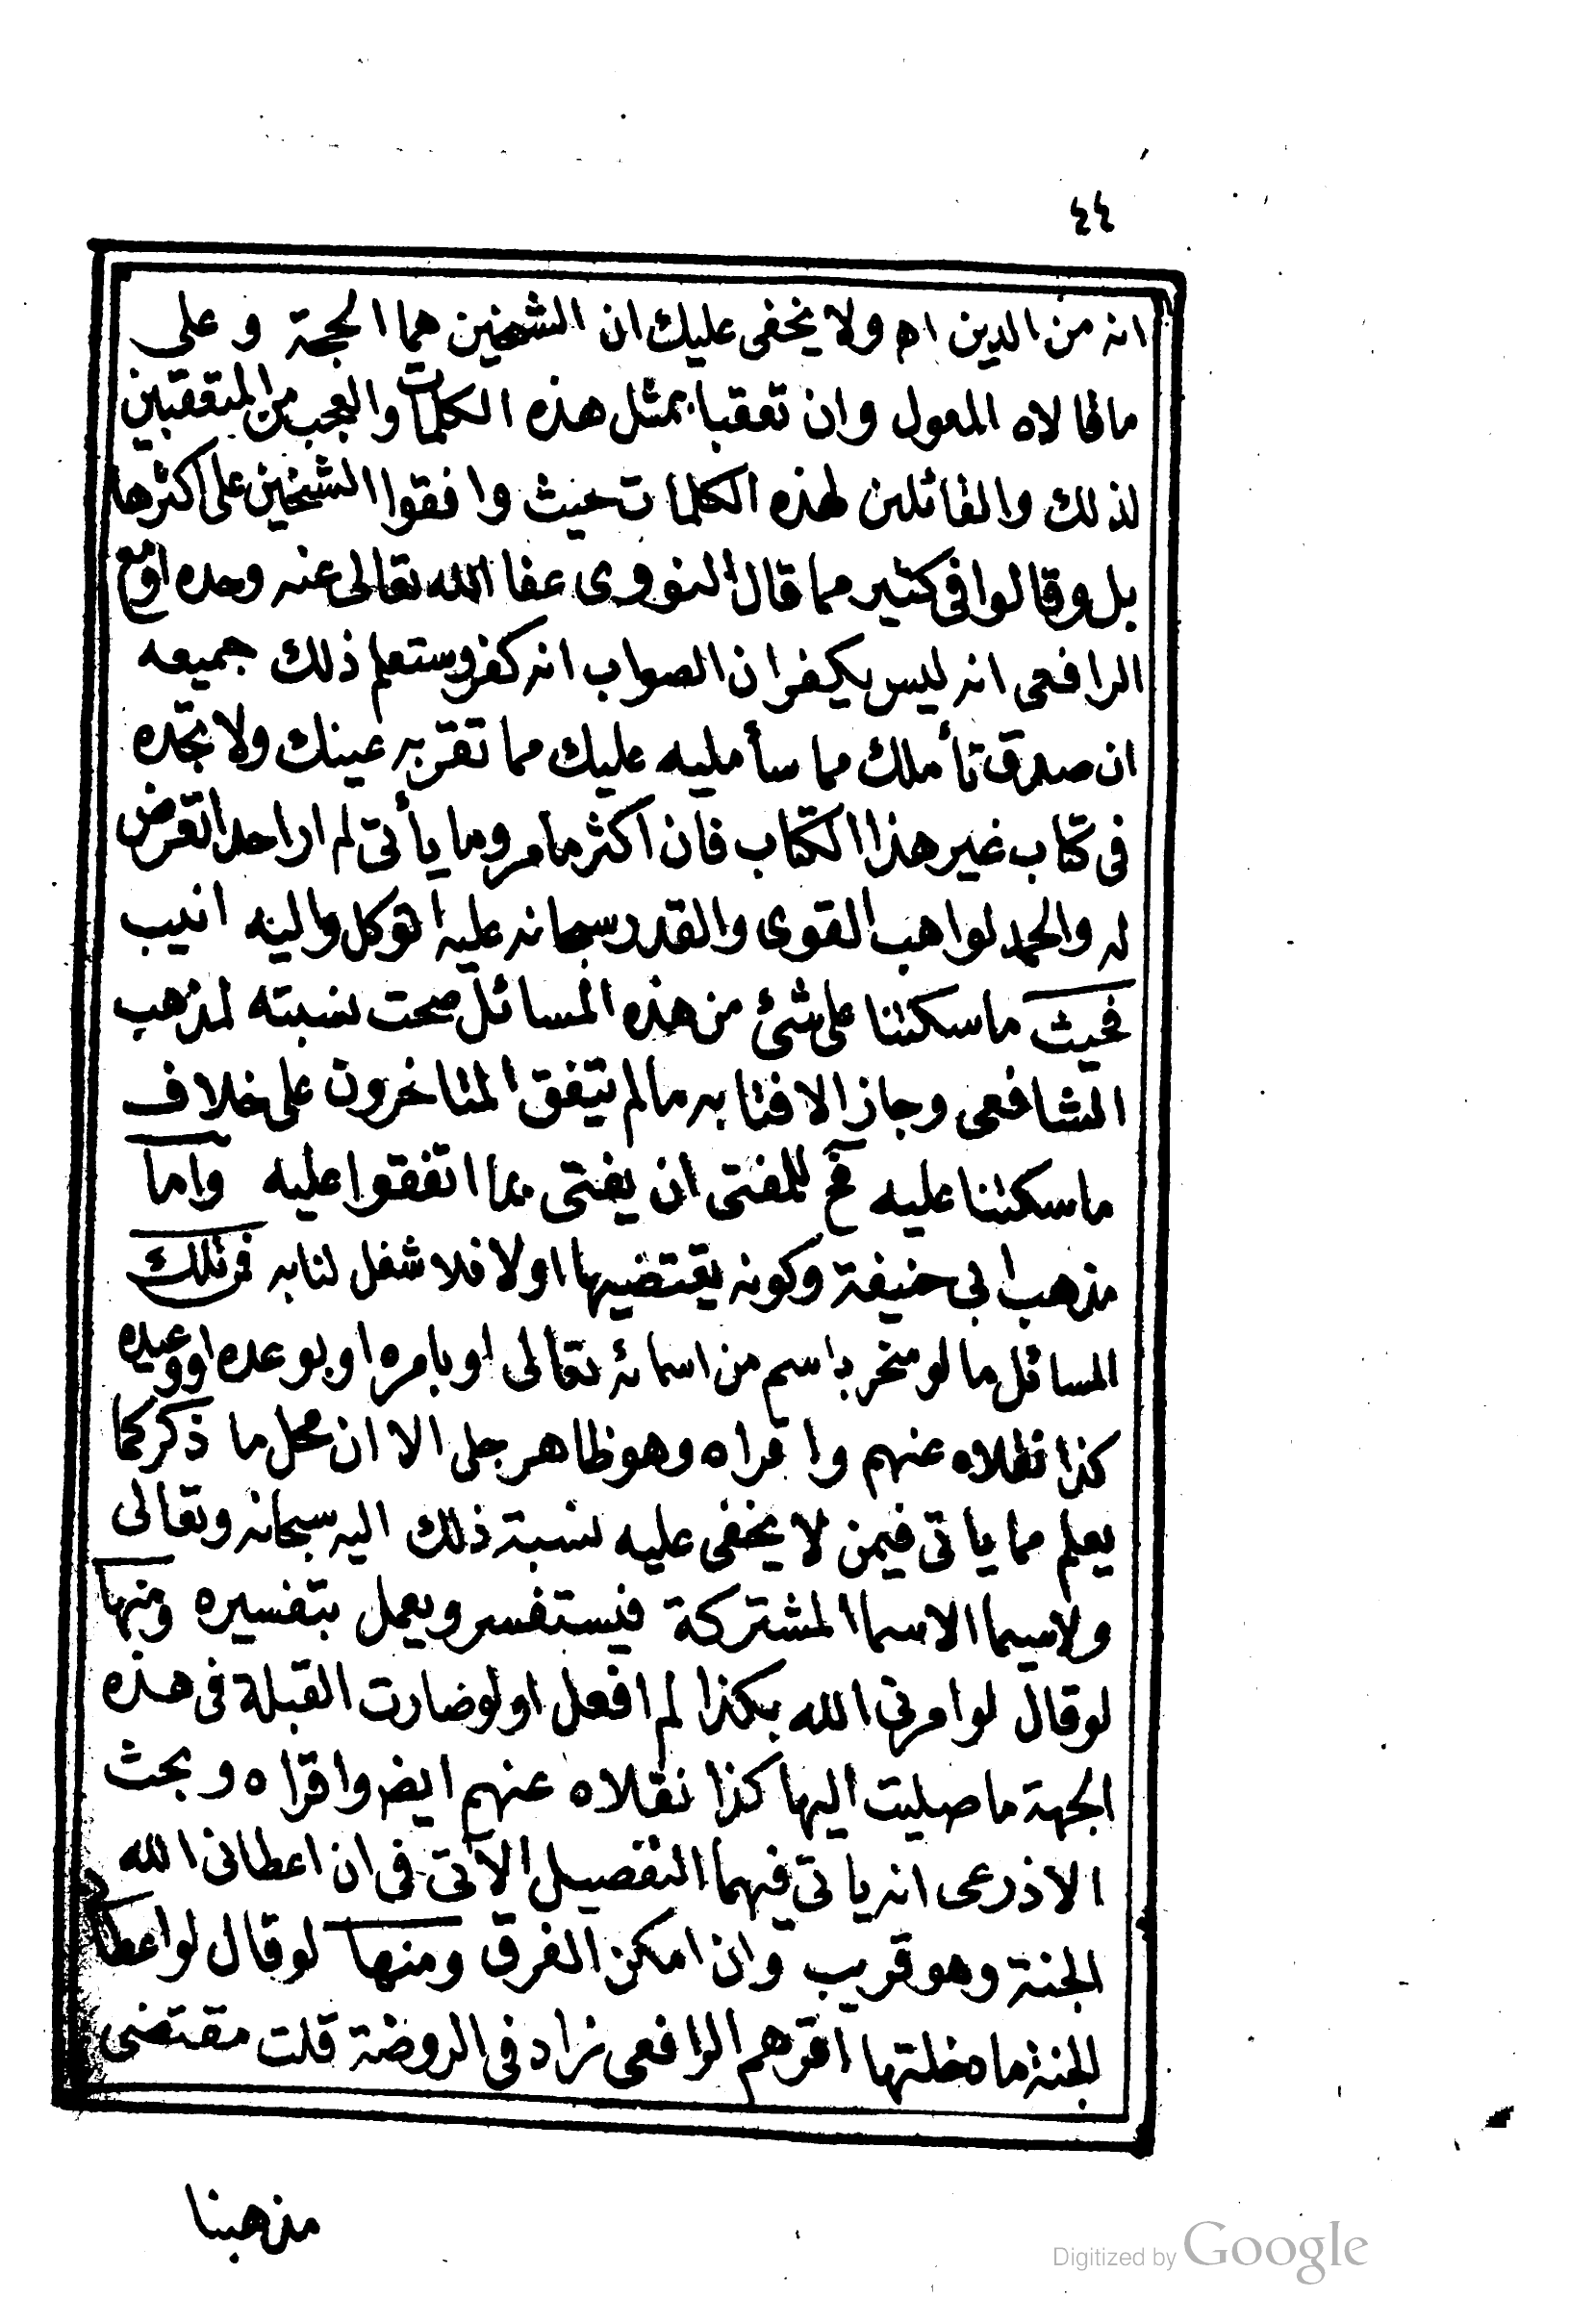 ٤٤
انه من الدين اه ولا يخفى عليك ان الشيخين هما الحجة وعلى
ما قالاه المعول وان تعقبا بمثل هذه الكلمات والعجب من المتعقبين
لذلك والقائلين لهذه الكلمات حيث وافقوا الشيخين على اكثرها
بل وقالوا فى كثير مما قال النووى عفا الله تعالى عنه وحده او مع
الرافعى انه ليس بكفر ان الصواب انه كفر وستعلم ذلك جميعه
ان صدق تأملك مما سأمليه عليك مما تقر به عينك ولا تجده
فى كتاب غير هذا الكتاب فان اكثر ما مر وما يأتى لم ار احدا تعرض
له والحمد لواهب القوى والقدر سبحانه عليه اتوكل واليه انيب
فحيث ما سكتنا على شئ من هذه المسائل صحت نسبته لمذهب
الشافعى وجاز الافتا به ما لم يتفق المتاخرون على خلاف
ما سكتنا عليه فح للمفتى ان يفتى بما اتفقوا عليه واما
مذهب ابى حنيفة وكونه يقتضيها اولا فلا شغل لنا به فمن تلك
المسائل ما لو سخر باسم من اسمائه تعالى او بامره او بوعده او وعيده
كذا نقلاه عنهم واقراه وهو ظاهر جلى الا ان محل ما ذكر كما
يعلم مما ياتى فيمن لا يخفى عليه نسبة ذلك اليه سبحانه وتعالى
ولاسيما الاسما المشتركة فيستفسر ويعمل بتفسيره ومنها
لو قال لو امرنى الله بكذا لم افعل او لو صارت القبلة فى هذه
الجهة ما صليت اليها كذا نقلاه عنهم ايض واقراه وبحث
الاذرعى انه ياتى فيهما التفصيل الآتى فى ان اعطانى الله
الجنة وهو قريب وان امكن الفرق ومنها لو قال لو اعطانى
الجنة ما دخلتها اقرهم الرافعى زاد فى الروضة قلت مقتضى
مذهبنا
Digitized by Google